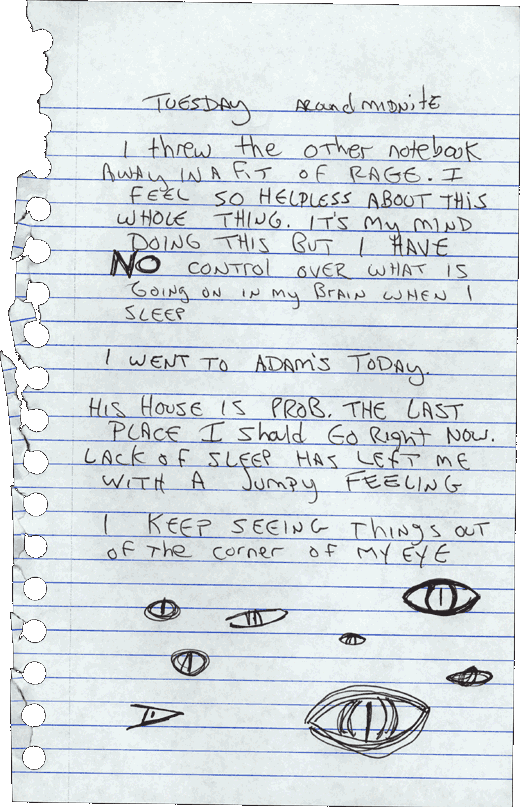 TUESDAY AROUND MIDNITE
I threw the other notebook
AWAY IN A FIT OF RAGE. I
FEEL SO HELPLESS ABOUT THIS
WHOLE THING. IT'S MY MIND
DOING THIS BUT I HAVE
NO CONTROL OVER WHAT IS
GOING ON IN MY BRAIN WHEN I
SLEEP
I WENT TO ADAM'S TODAY.
HIS HOUSE IS PROB. THE LAST
PLACE I Should GO Right NOW.
LACK OF SLEEP HAS LEFT ME
WITH A JUMPY FEELING
I KEEP SEEING THINGS OUT
OF THE CORNER OF MY EYE